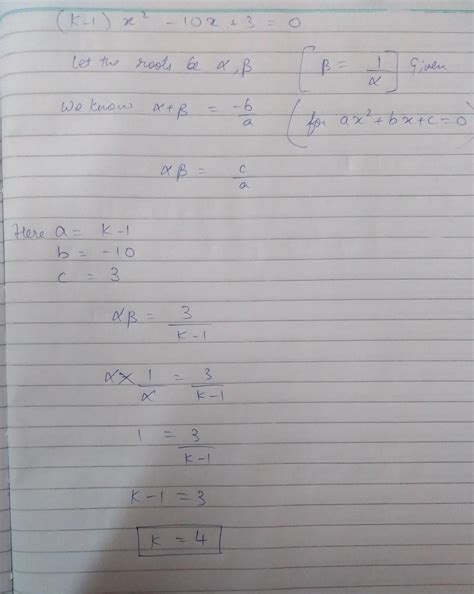 (k-1) x² - 10x + 3 = 0
Let the roots be α, β [β = 1/α] Given
We know α+β = -b/a (for ax² + bx + c = 0)
αβ = c/a
Here a = k-1
b = -10
c = 3
αβ = 3/k-1
α × 1/α = 3/k-1
1 = 3/k-1
k-1 = 3
k = 4